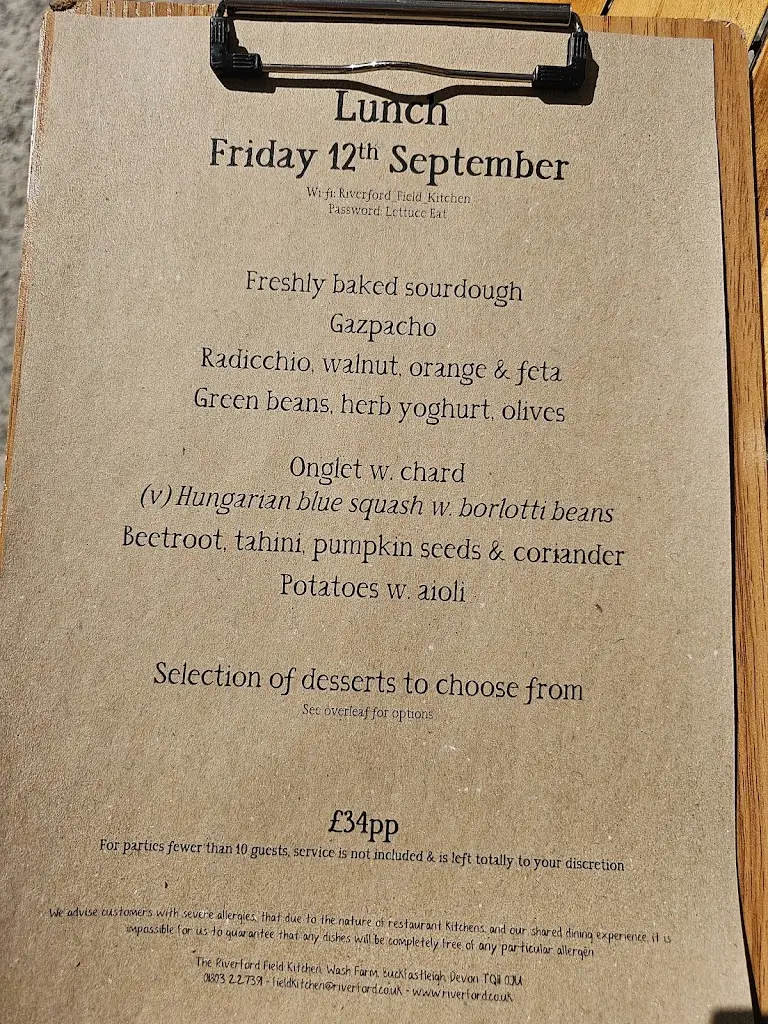 Lunch
Friday 12th September
Wi-fi: Riverford_Field_Kitchen
Password: Lettuce Eat
Freshly baked sourdough
Gazpacho
Radicchio, walnut, orange & feta
Green beans, herb yoghurt, olives
Onglet w. chard
(v) Hungarian blue squash w. borlotti beans
Beetroot, tahini, pumpkin seeds & coriander
Potatoes w. aioli
Selection of desserts to choose from
See overleaf for options
£34pp
For parties fewer than 10 guests, service is not included & is left totally to your discretion
We advise customers with severe allergies, that due to the nature of restaurant kitchens, and our shared dining experience, it is
impossible for us to guarantee that any dishes will be completely free of any particular allergen
The Riverford Field Kitchen, Wash Farm, Buckfastleigh, Devon TQ11 0JU
01803 227391 - fieldkitchen@riverford.co.uk - www.riverford.co.uk